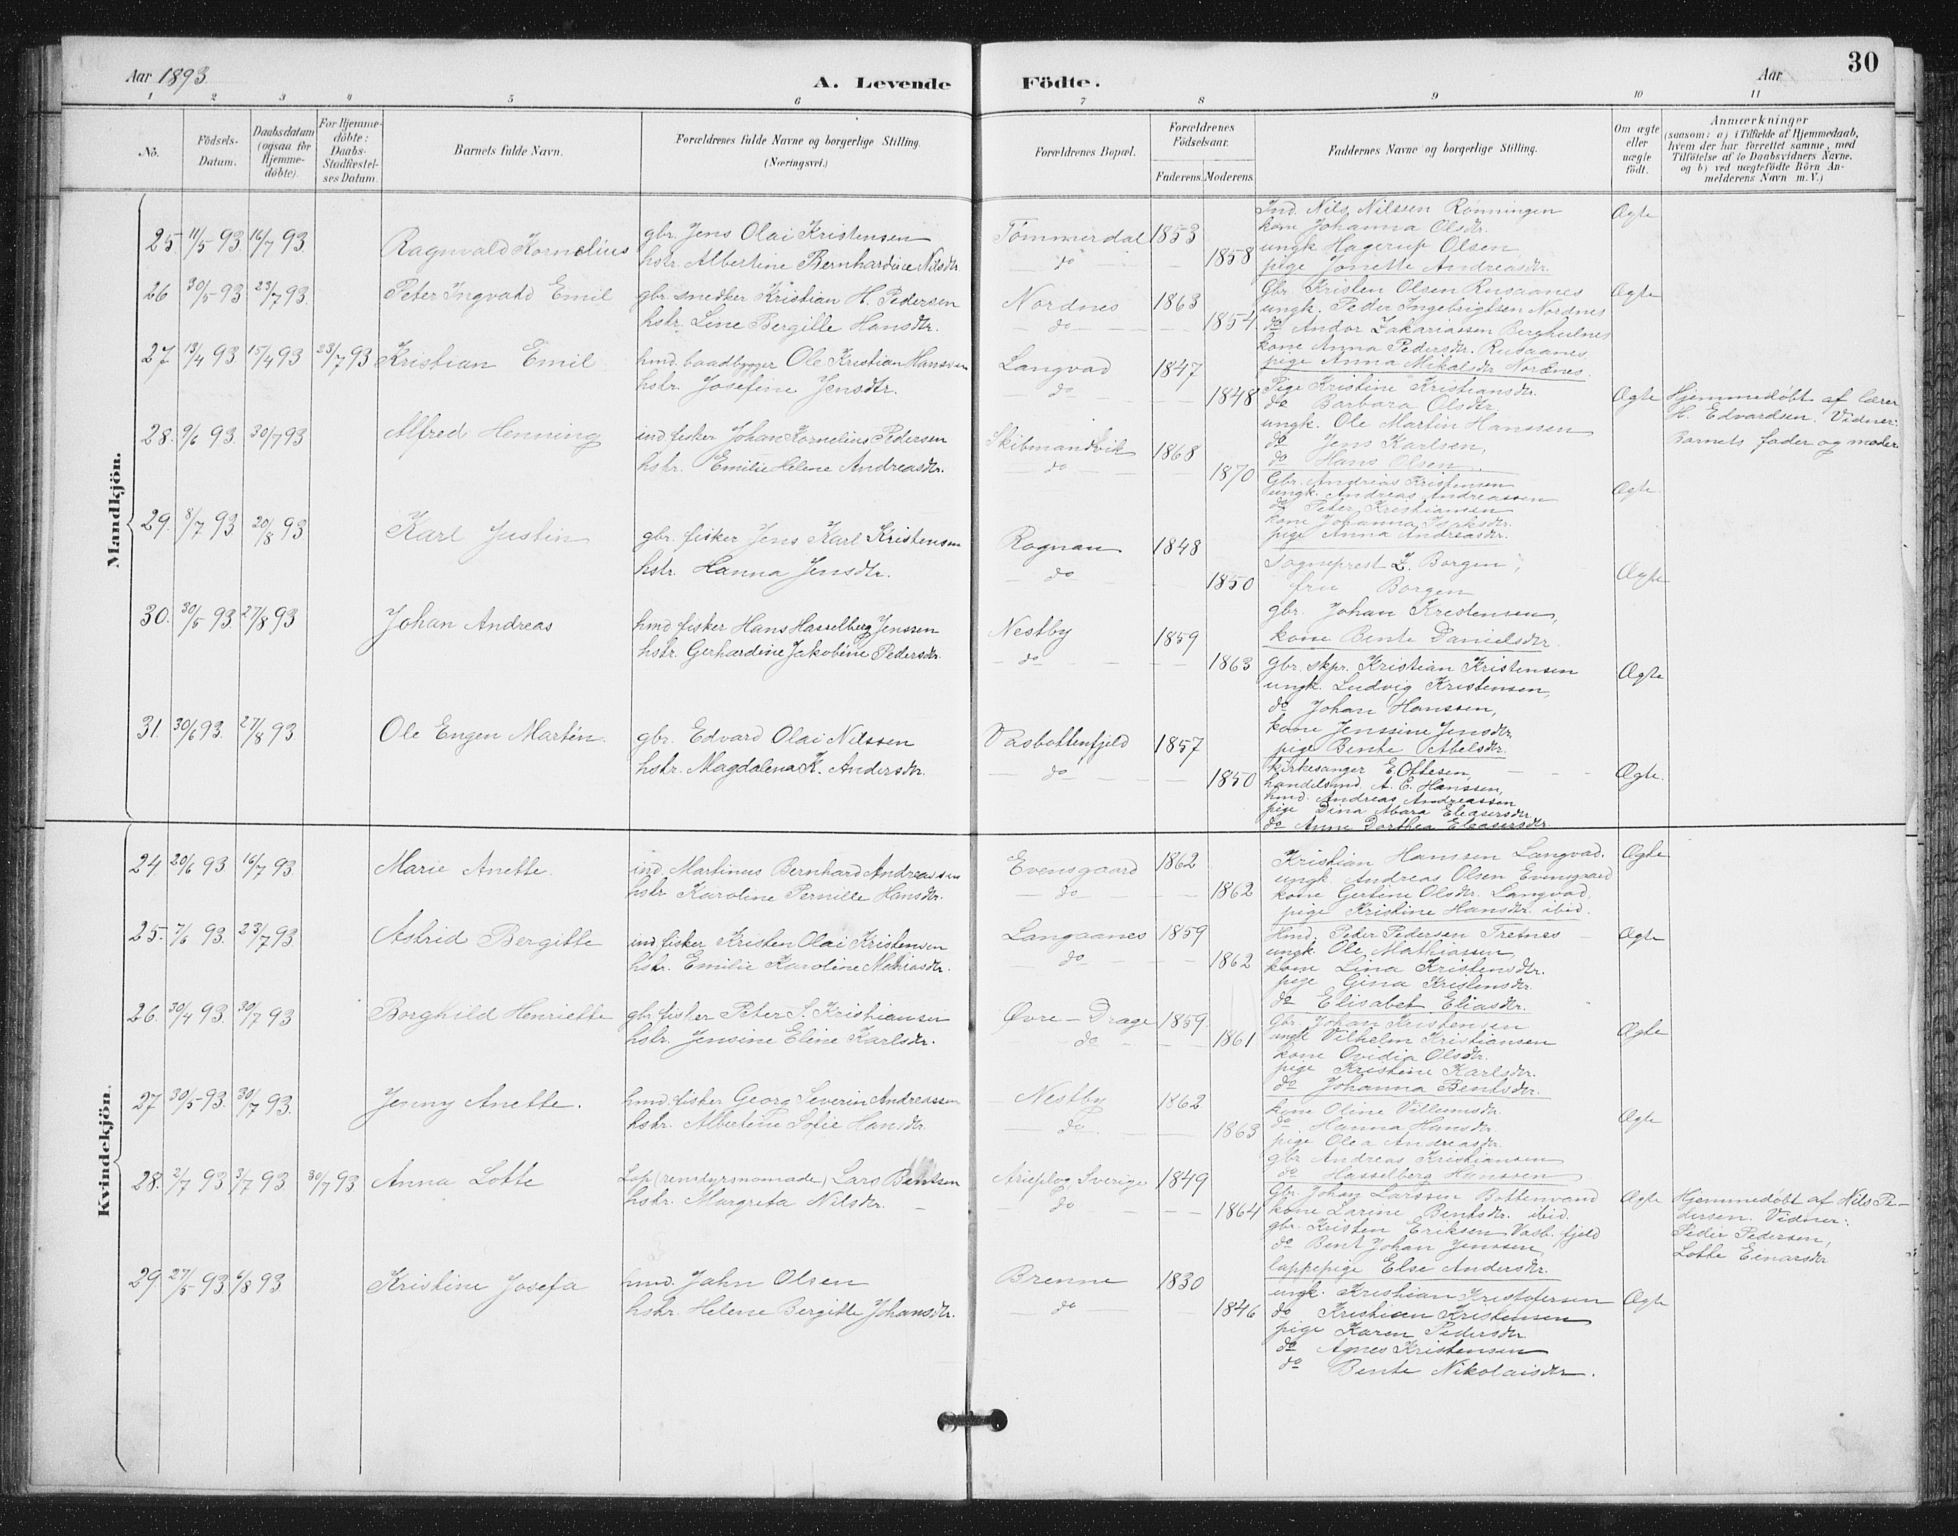 Aar 1893.
A. Levende Födte.
Aar
30
1 2 3 4 5 6 7 8 9 10 11
No.
Födsels-Datum.
Daabsdatum (ogsaa for Hjemme-döbte).
For Hjemme-döbte: Daabs-Stadfæstel-ses Datum.
Barnets fulde Navn.
Forældrenes fulde Navne og borgerlige Stilling. (Næringsvei.)
Forældrenes Bopæl.
Forældrenes Födselsaar.
Faderens. Moderens.
Faddernes Navne og borgerlige Stilling.
Om ægte eller uægte födt.
Anmærkninger
(saasom: a) i Tilfælde af Hjemmedaab, hvem der har forrettet samme, med Tilföielse af to Daabsvidners Navne, og b) ved uægtefödte Börn An-melderens Navn m. V.)
Mandkjön.
25. 11/5 93 16/7 93 Ragnvald Kornelius
gbr. Jens Olai Kristensen
hstr. Albertine Bernhardine Nilsdtr.
Tömmerdal 1853
do 1858
Ind. Nils Nilssen Rönningen
kone Johanna Olsdtr.
ungk Hagerup Olsen
pige Jonette Andreasdtr.
Ægte
26 30/5 93 23/7 93. Peter Ingvald Emil
gbr. snedker Kristian H. Pedersen
hstr. Line Bergitte Hansdtr.
Nordnes 1863
do 1854
Gbr. Kristen Olsen Rusaanes
ungk. Peder Ingebrigtsen Nordnes
do Andor Zakariassen Berghulnes
kone Anna Pedersdtr. Rusaanes
pige Anna Mikalsdtr Nordnes.
Ægte
27. 13/4 93 15/4 93 23/7 93 Kristian Emil
hmd. baadbygger Ole Kristian Hanssen
hstr. Josefine Jensdtr.
Langvad 1847
do 1848
Pige Kristine Kristiansdtr
do Barbara Olsdtr
ungk. Ole Martin Hanssen
do Jens Karlsen,
do Hans Olsen
Ægte
Hjemmedøbt af lærer
H. Edvardsen. Vidner:
Barnets fader og moder
28. 9/6 93. 30/7 93 Alfred Henning
ind fisker Johan Kornelius Pedersen
hstr. Emilie Helene Andreasdtr.
Skibmandvik 1868
do 1870
Gbr. Andreas Kristensen
ungk. Andreas Andreassen
do Peter Kristiansen
kone Johanna
pige Anna Andreasdtr.
Ægte
29. 8/7 93 20/8 93 Karl Justin
gbr. fisker Jens Karl Kristensen
hstr. Hanna Jensdtr.
Rognan 1848
do 1850
Sogneprest Z. Borgen,
fru Borgen
gbr. Johan Kristensen,
kone Bente Danielsdtr.
Ægte
30. 30/5 93. 27/8 93 Johan Andreas
hmd fisker Hans Hasselberg Jenssen
hstr. Gerhardine Jakobine Pedersdtr.
Nestby 1859
do 1863
gbr. skpr. Kristian Kristensen
ungk. Ludvig Kristensen,
do Johan Hanssen,
kone Jenssine Jensdtr.
pige Bente Abelsdtr.
Ægte
31. 30/6 93. 27/8 93 Ole Engen Martin
gbr. Edvard Olai Nilssen
hstr. Magdalena K. Andersdtr.
Vasbottenfjeld 1857
do 1850
kirkesanger E. Ottesen,
handelsmd. A. C. Hanssen,
hmd. Andreas Andreassen
pige Dina Abara Eleasersdtr.
do Anne Dorthea Eleasersdtr.
Ægte.
Kvindekjön.
24. 20/6 93 16/7 93 Marie Anette.
ind. Martinus Bernhard Andreassen
hstr Karoline Pernille Hansdtr.
Evensgaard 1862
do 1862
Kristian Hanssen Langvad.
ungk Andreas Olsen Evensgaard
kone Gertine Olsdtr. Langvad.
pige Kristine Hansdtr. ibid.
Ægte
25. 7/6 93. 23/7 93 Astrid Bergitte
ind. fisker Kristen Olai Kristensen
hstr. Emilie Karoline Mathiasdtr.
Langaanes 1859
do 1862
Hmd. Peder Pedersen Tretnes
ungk. Ole Mathiassen
kone Lina Kristensdtr.
pige Gina Kristensdtr.
do Elisabet Eliasdtr.
Ægte
26. 30/4 93. 30/7 93 Borghild Henriette
gbr fisker Peter S. Kristiansen
hstr. Jensine Eline Karlsdtr.
Øvre-Drage 1859.
do 1861
Gbr. Johan Kristensen
ungk Vilhelm Kristiansen
kone Ovidia Olsdtr.
pige Kristine Karlsdtr.
do Johanna Bentsdtr.
Ægte
27 30/5 93. 30/7 93. Jenny Anette.
hmd. fisker Georg Severin Andreassen
hstr. Albertine Sofie Hansdtr.
Nestby 1862
do 1863
kone Oline Villumsdtr.
do Hanna Hansdtr.
pige Olea Andreasdtr.
gbr Andreas Kristiansen
do Hasselberg Hanssen
Ægte
28. 2/7 93 3/7 93 30/7 93 Anna Lotte
Lap (rensdyrsnomade) Lars Bentsen
hstr. Margreta Nilsdtr.
Arieplog Sverige 1849
do 1864
Gbr. Johan Larssen Bottenvand
kone Larine Bentsdtr. ibid.
gbr. Kristen Eriksen Vasb.fjeld
do Bent Johan Jenssen
lappepige Else Andersdtr.
Ægte
Hjemmedøbt af Nils Pe-
dersen. Vidner:
Peder Pedersen,
Lotte Einarsdtr
29. 27/5 93. 6/8 93 Kristine Josefa
hmd. John Olsen
hstr. Helene Bergitte Johansdtr.
Brenne 1830
do 1846
ungk. Kristian Kristofersen
do Kristian Kristensen
pige Karen Pedersdtr.
do Agnes Kristensen
do Bente Nikolaisdtr.
Ægte